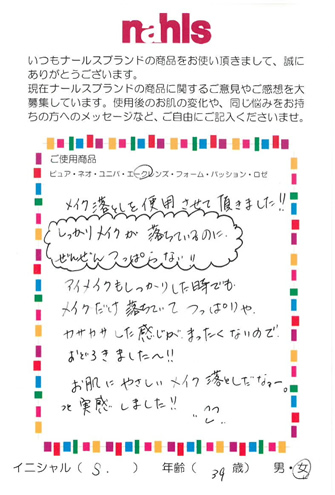 nahls
いつもナールスブランドの商品をお使い頂きまして、誠に
ありがとうございます。
現在ナールスブランドの商品に関するご意見やご感想を大
募集しています。使用後のお肌の変化や、同じ悩みをお持
ちの方へのメッセージなど、ご自由にご記入くださいませ。
ご使用商品
ピュア・ネオ・ユニバ・エークレンズ・フォーム・パッション・ロゼ
メイク落としを使用させて頂きました!!
しっかりメイクが落ちているのに、
ぜんぜんつっぱらない!!
アイメイクもしっかりした時でも
メイクだけ落ちていてつっぱりや、
カサカサした感じがまったくないので
おどろきましたー!!
お肌にやさしいメイク落としだなぁー。
と実感しました!!
イニシャル( S. ) 年齢( 39 歳) 男・女